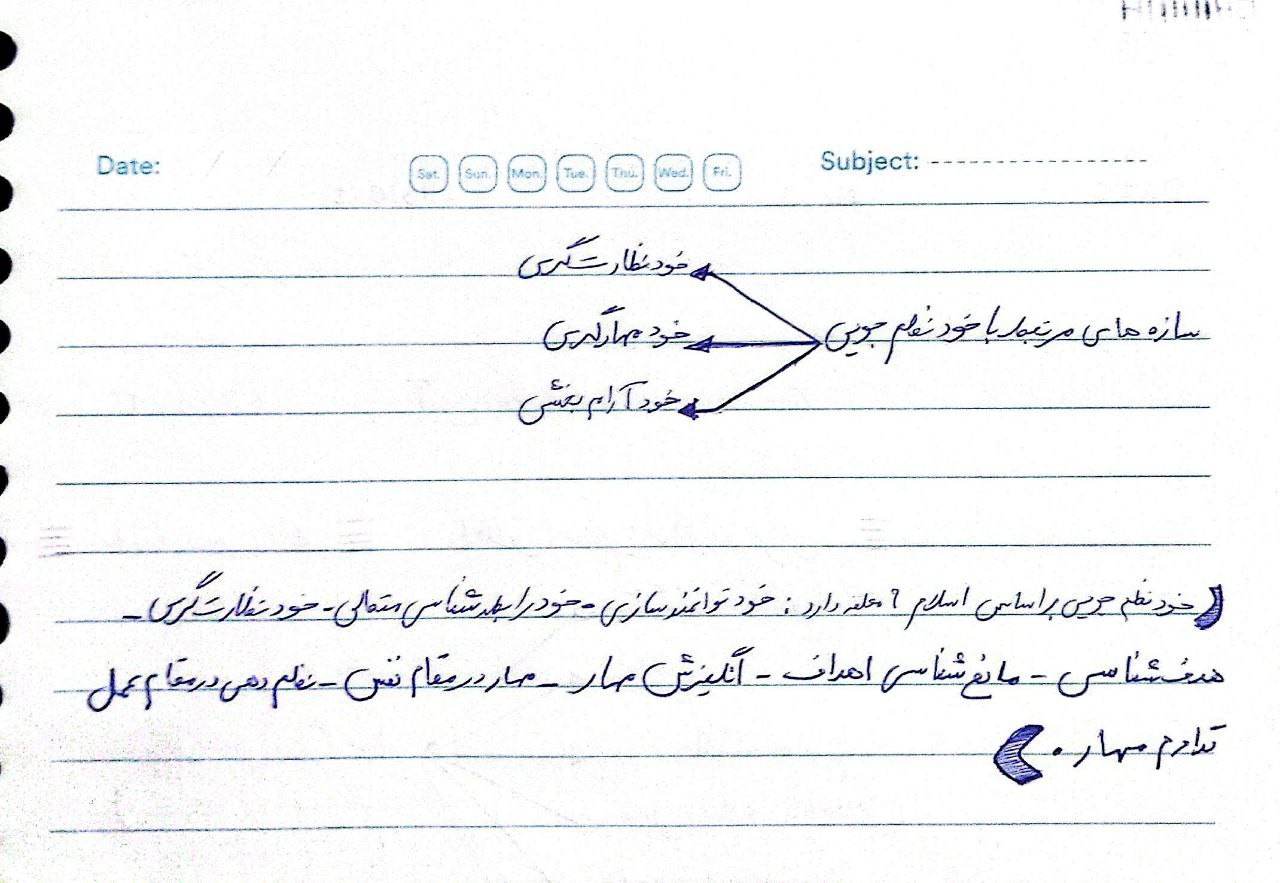 Date:
Sat. Sun. Mon. Tue. Thu. Wed. Fri.
Subject:
سازه های مرتبط با خود نظم جویی
خود نظارت گری
خود مهارگری
خود آرام بخشی
خود نظم جویی براساس اسلام ۹ مولفه دارد : خود توانمندسازی - خود رابطه شناسی متعالی - خود نظارت گری -
هدف شناسی - مانع شناسی اهداف - انگیزش مهار - مهار در مقام نفس - نظم دهی در مقام عمل
تداوم مهار .